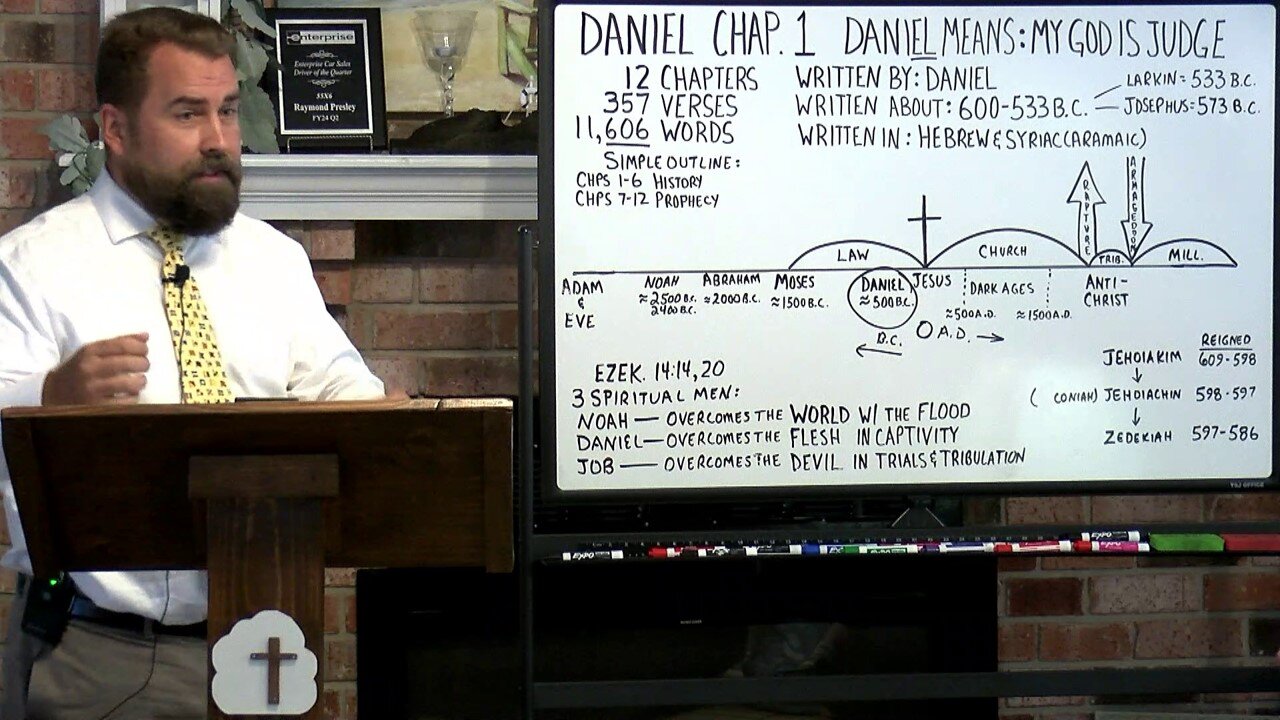 enterprise
Enterprise Car Sales
Driver of the Quarter
55X6
Raymond Presley
FY24 Q2
DANIEL CHAP. 1 DANIEL MEANS: MY GOD IS JUDGE
12 CHAPTERS
357 VERSES
11,606 WORDS
WRITTEN BY: DANIEL
WRITTEN ABOUT: 600-533 B.C.
LARKIN = 533 B.C.
JOSEPHUS = 573 B.C.
WRITTEN IN: HEBREW & SYRIAC(ARAMAIC)
SIMPLE OUTLINE:
CHPS 1-6 HISTORY
CHPS 7-12 PROPHECY
LAW
CHURCH
RAPTURE
TRIB.
ARMAGEDDON
MILL.
ADAM
&
EVE
NOAH
≈2500 B.C.
2400 B.C.
ABRAHAM
≈2000 B.C.
MOSES
≈1500 B.C.
DANIEL
≈500 B.C.
JESUS
DARK AGES
≈500 A.D.
≈1500 A.D.
ANTI-
CHRIST
B.C. 0 A.D.
EZEK. 14:14, 20
3 SPIRITUAL MEN:
NOAH — OVERCOMES THE WORLD W/ THE FLOOD
DANIEL — OVERCOMES THE FLESH IN CAPTIVITY
JOB — OVERCOMES THE DEVIL IN TRIALS & TRIBULATION
REIGNED
JEHOIAKIM 609-598
(CONIAH) JEHOIACHIN 598-597
ZEDEKIAH 597-586
EXPO
EXPO
EXPO